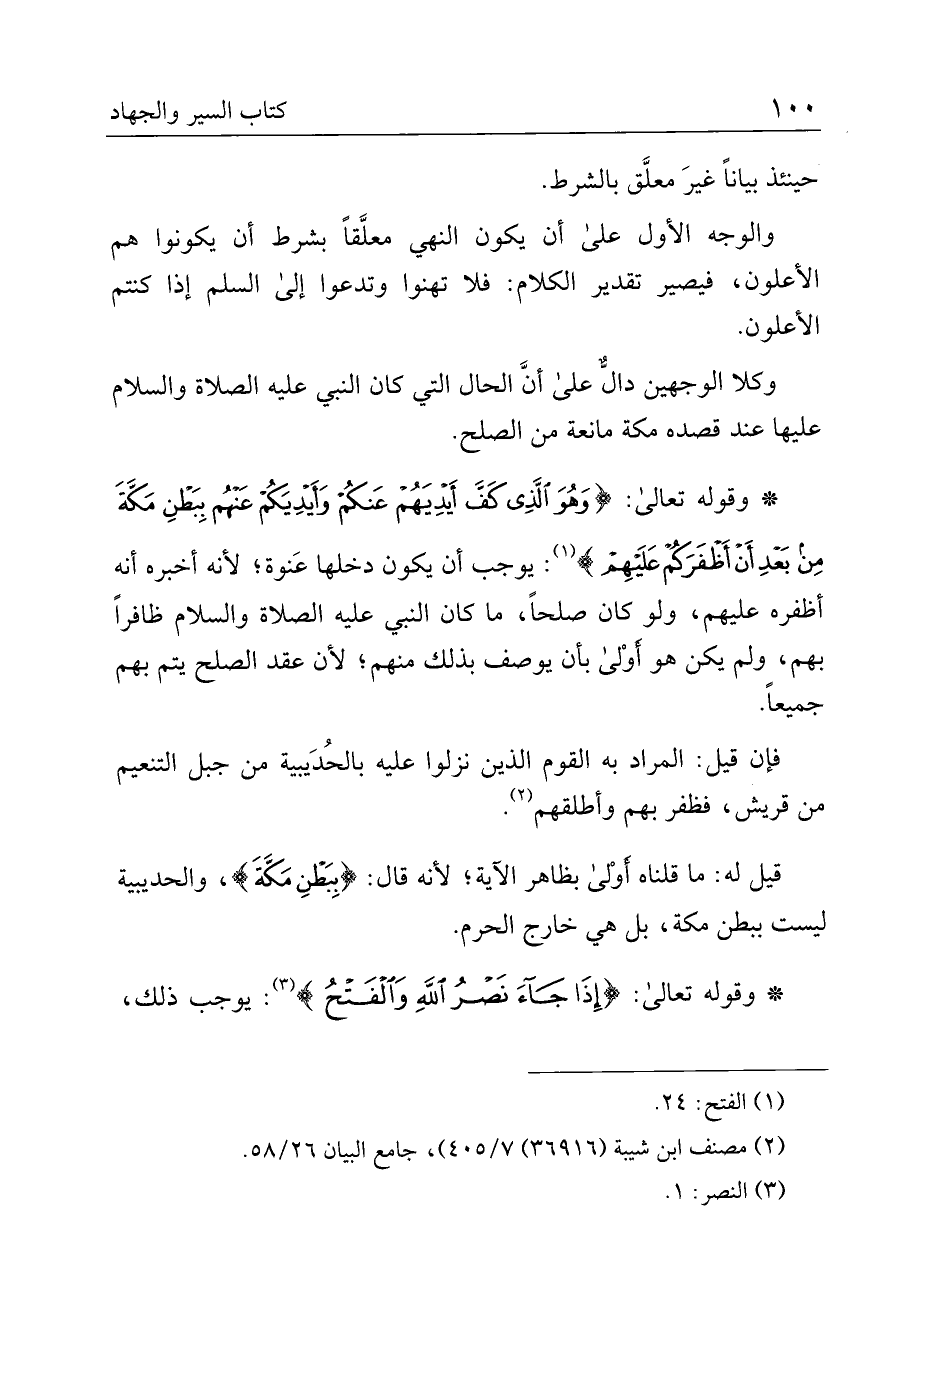 ١٠٠ كتاب السير والجهاد
حينئذ بياناً غيرَ معلَّق بالشرط.
والوجه الأول علىٰ أن يكون النهي معلَّقاً بشرط أن يكونوا هم
الأعلون، فيصير تقدير الكلام: فلا تهنوا وتدعوا إلىٰ السلم إذا كنتم
الأعلون.
وكلا الوجهين دالٌّ علىٰ أنَّ الحال التي كان النبي عليه الصلاة والسلام
عليها عند قصده مكة مانعة من الصلح.
* وقوله تعالىٰ: ﴿وَهُوَ ٱلَّذِى كَفَّ أَيْدِيَهُمْ عَنكُمْ وَأَيْدِيَكُمْ عَنْهُم بِبَطْنِ مَكَّةَ
مِنۢ بَعْدِ أَنْ أَظْفَرَكُمْ عَلَيْهِمْ﴾(١): يوجب أن يكون دخلها عَنوة؛ لأنه أخبره أنه
أظفره عليهم، ولو كان صلحاً، ما كان النبي عليه الصلاة والسلام ظافراً
بهم، ولم يكن هو أَوْلىٰ بأن يوصف بذلك منهم؛ لأن عقد الصلح يتم بهم
جميعاً.
فإن قيل: المراد به القوم الذين نزلوا عليه بالحُدَيبية من جبل التنعيم
من قريش، فظفر بهم وأطلقهم(٢).
قيل له: ما قلناه أَوْلىٰ بظاهر الآية؛ لأنه قال: ﴿بِبَطْنِ مَكَّةَ﴾، والحديبية
ليست ببطن مكة، بل هي خارج الحرم.
* وقوله تعالىٰ: ﴿إِذَا جَآءَ نَصْرُ ٱللَّهِ وَٱلْفَتْحُ﴾(٣): يوجب ذلك،
(١) الفتح: ٢٤.
(٢) مصنف ابن شيبة (٣٦٩١٦) ٤٠٥/٧)، جامع البيان ٥٨/٢٦.
(٣) النصر: ١.